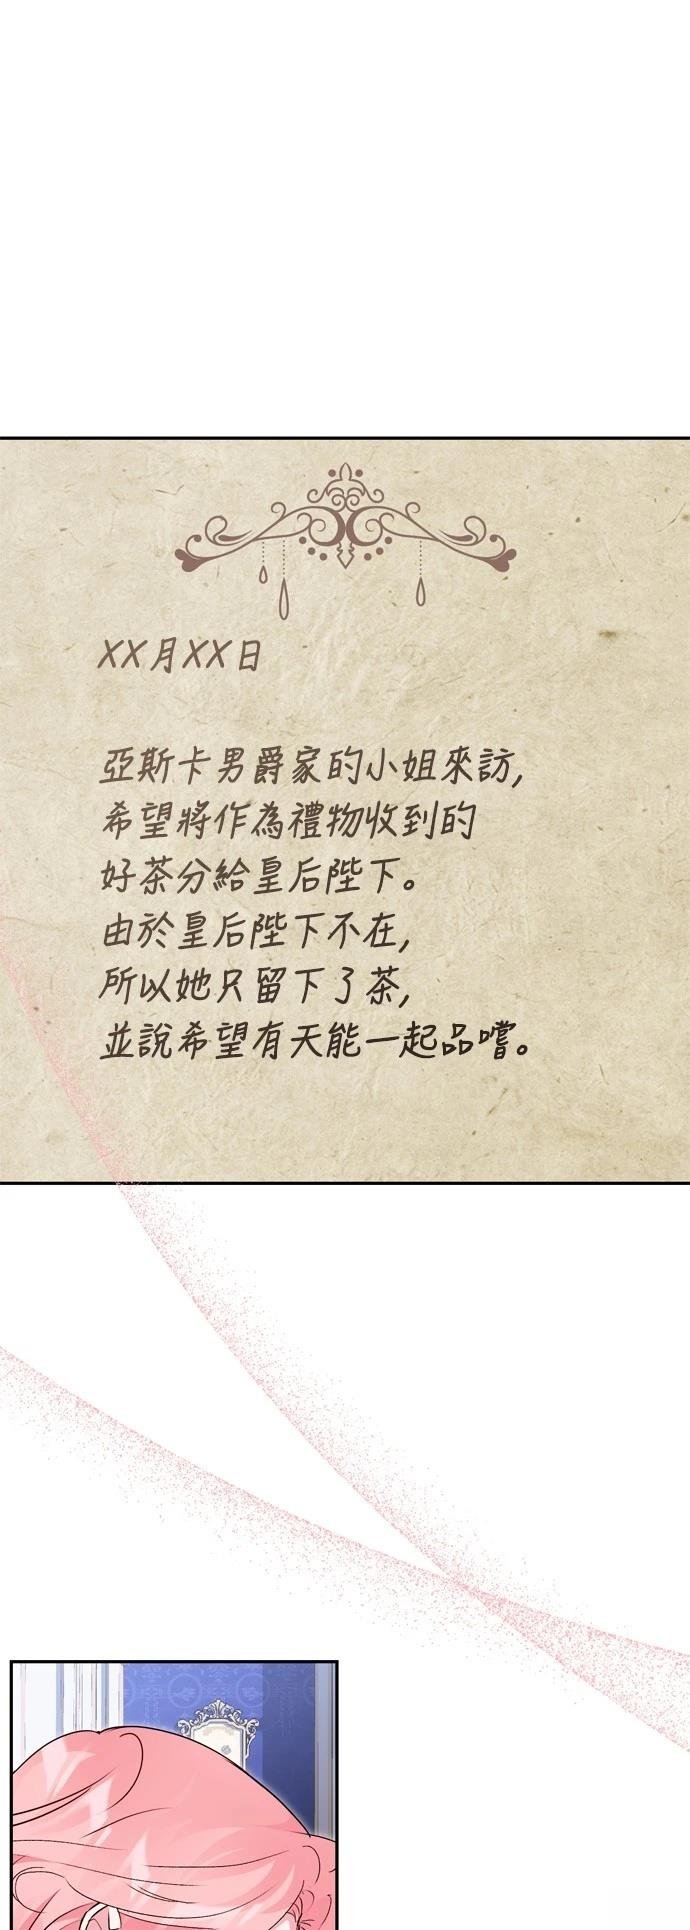 XX月XX日
亞斯卡男爵家的小姐來訪,
希望將作為禮物收到的
好茶分給皇后陛下。
由於皇后陛下不在,
所以她只留下了茶,
並說希望有天能一起品嚐。